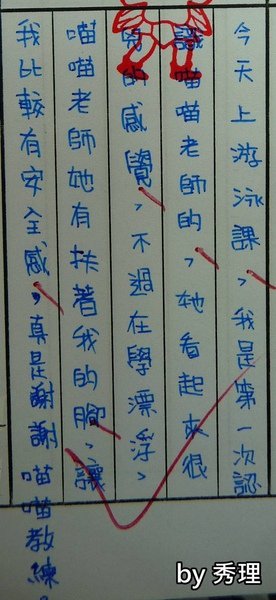 今天上游泳課，我是第一次認
識喵喵老師的，她看起來很
的感覺，不過在學漂浮，
喵喵老師她有扶著我的腳，讓
我比較有安全感，真是謝謝喵喵教練。
by 秀理